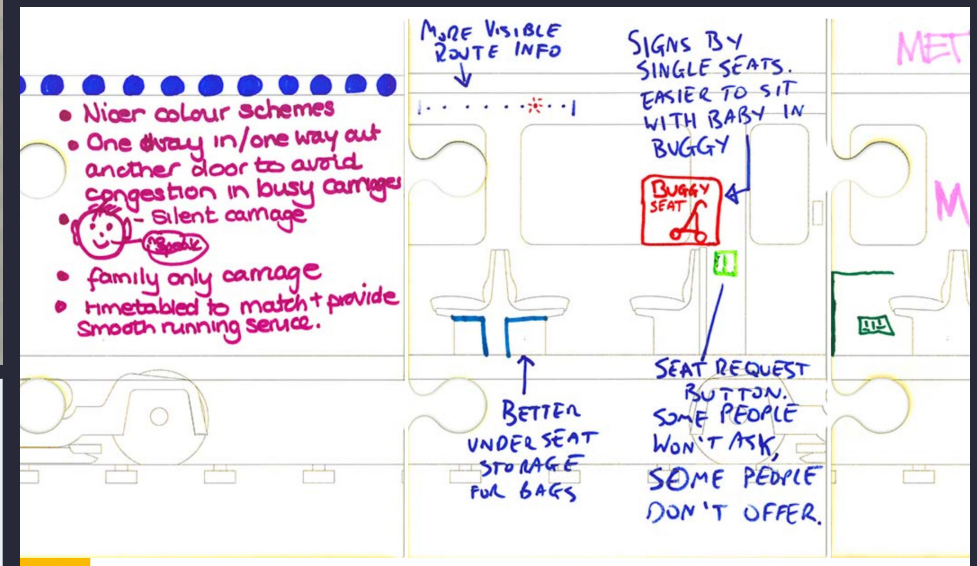 • Nicer colour schemes
• One way in/one way out
another door to avoid
congestion in busy carriages
• - Silent carriage
• family only carriage
• timetabled to match + provide
smooth running service.
MORE VISIBLE
ROUTE INFO
SIGNS BY
SINGLE SEATS.
EASIER TO SIT
WITH BABY IN
BUGGY
BUGGY
SEAT
BETTER
UNDER SEAT
STORAGE
FOR BAGS
SEAT REQUEST
BUTTON.
SOME PEOPLE
WON'T ASK,
SOME PEOPLE
DON'T OFFER.
MET
M